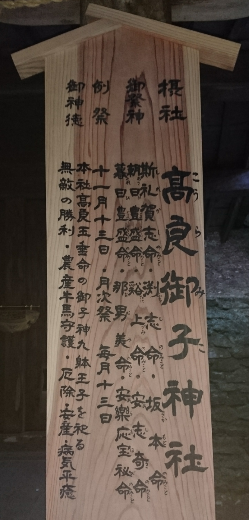 摂社
高良御子神社
こうらみこ
御祭神
斯礼賀志命・渕志命・坂本命
朝日豊盛命・谿上命・安志奇命
暮日豊盛命・那男美命・安樂応宝秘命
例祭
十一月十三日・月次祭 毎月十三日
御神徳
本社高良玉垂命の御子神九躰王子を祀る
無敵の勝利・農産牛馬守護・厄除・安産・病気平癒